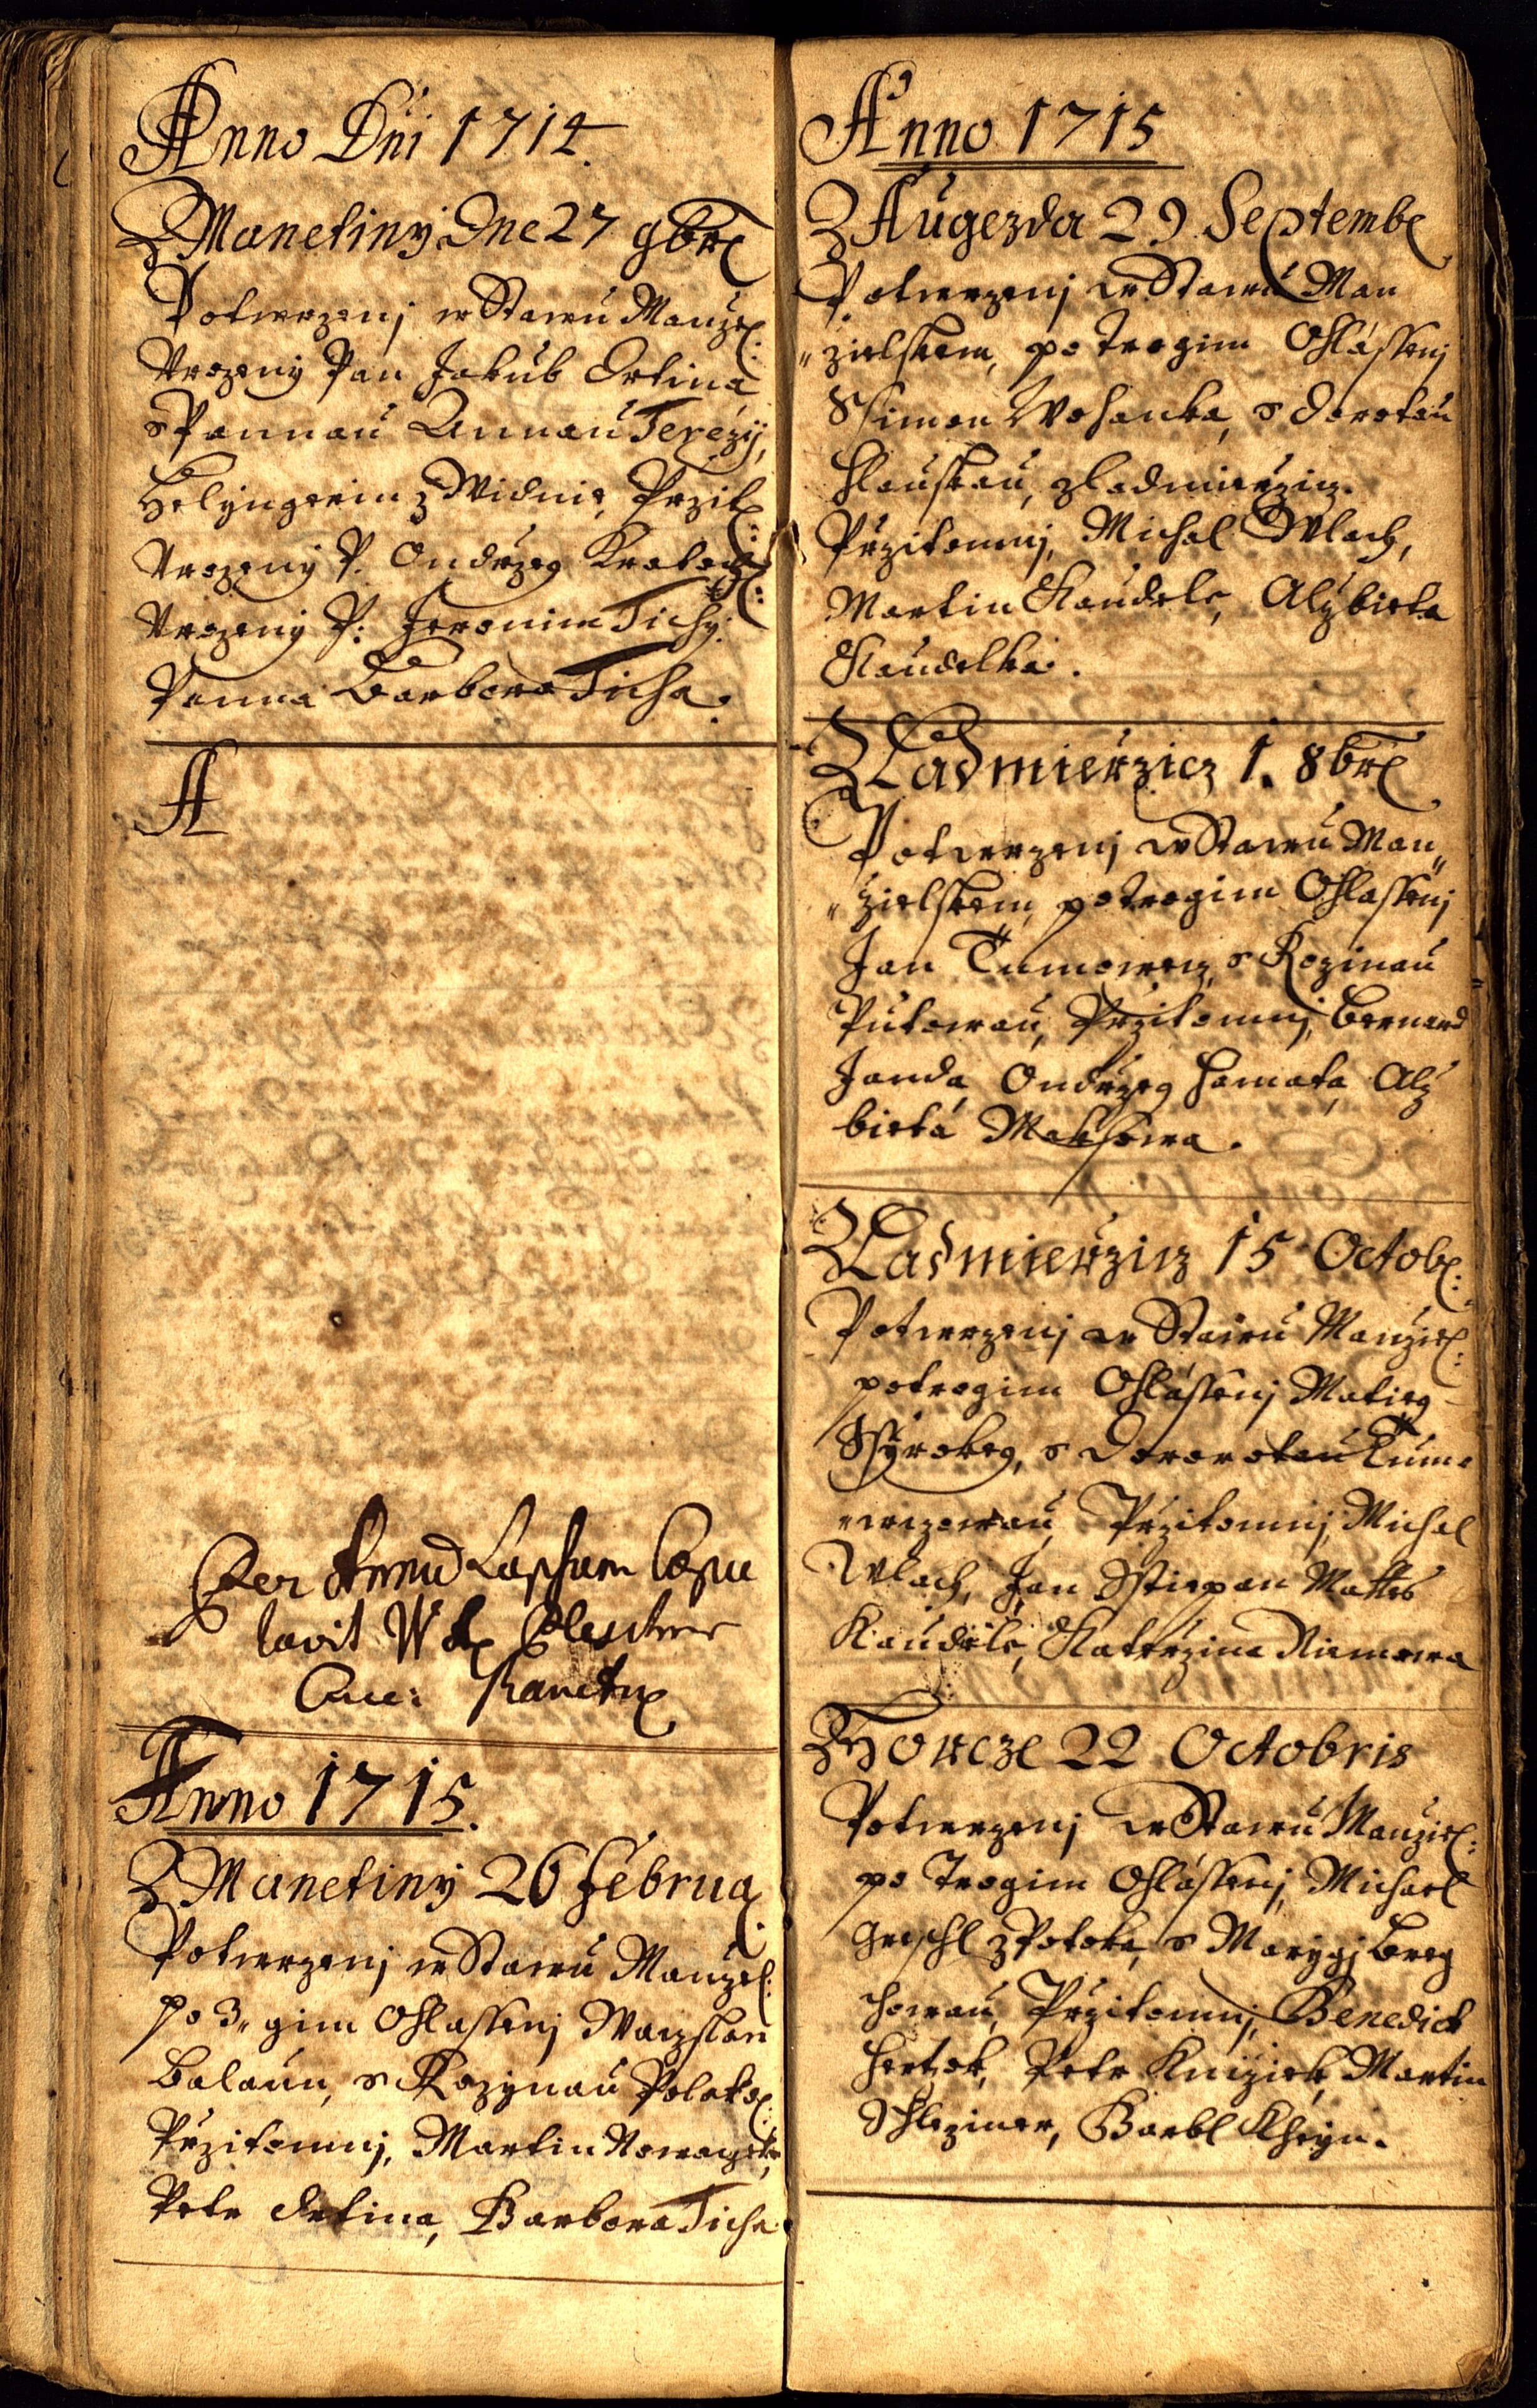 Anno Dni 1714.
Z Manetiny Dne 27 9br
Potwrzenj w Stawu Manžel:
Urozeny Pan Jakub Ortina
s Pannau Annau Terezij,
Helyngerin z Widnie, Przit:
Urozeny P. Ondrzeg
Urozeny P: Jeronim Tichy.
Panna Barbora Ticha.
A
Per
lavit
Anno 1715.
Z Manetiny 26 Februa
Potwrzenj w Stawu Manžel:
po 3„ gim Ohlassenj Waczslaw
Balaun, s Rozynau Polak
Przitomnj, Martin
Petr Ortina, Barbora Ticha
Anno 1715
Z Augezda 29 Septemb
Potwrzenj w Stawu Man
„zielskem, po Tregim Ohlássenj
Ssimon Wohanka, s Dorotau
Hlauskau, z Ladmierzicz.
Przitomnj, Michal Wlach,
Martin Kaudele, Alzbieta
Kaudelka.
Z Ladmierzicz 1. 8br
Potwrzenj w Stawu Man„
„zielskem, po Tregim Ohlassenj
Jan Tumowecz, s Rozinau
Putowau, Przitomnj, Bernard
Janda, Ondrzeg Hamata, Alz
bieta Maksowa.
Z Ladmierzicz 15 Octob:
Potwrzenj w Stawu Manziel:
po tregim Ohlássenj Matieg
Ssyrokeg, s Dororotau Tum„
„weczowau, Przitomnj, Michal
Wlach, Jan Sstiepan Mattes
Kaudele, Katerzina Niemcowa
Z Horcze 22 Octobris
Potwrzenj w Stawu Manziel:
po Tregim Ohlássenj, Michael
Greschl z Potoka, s Marygj Breg
howau, Przitomnj, Benedict
Hertzok, Petr Knižiek, Martin
Schlezimer, Barbl Kheyn.